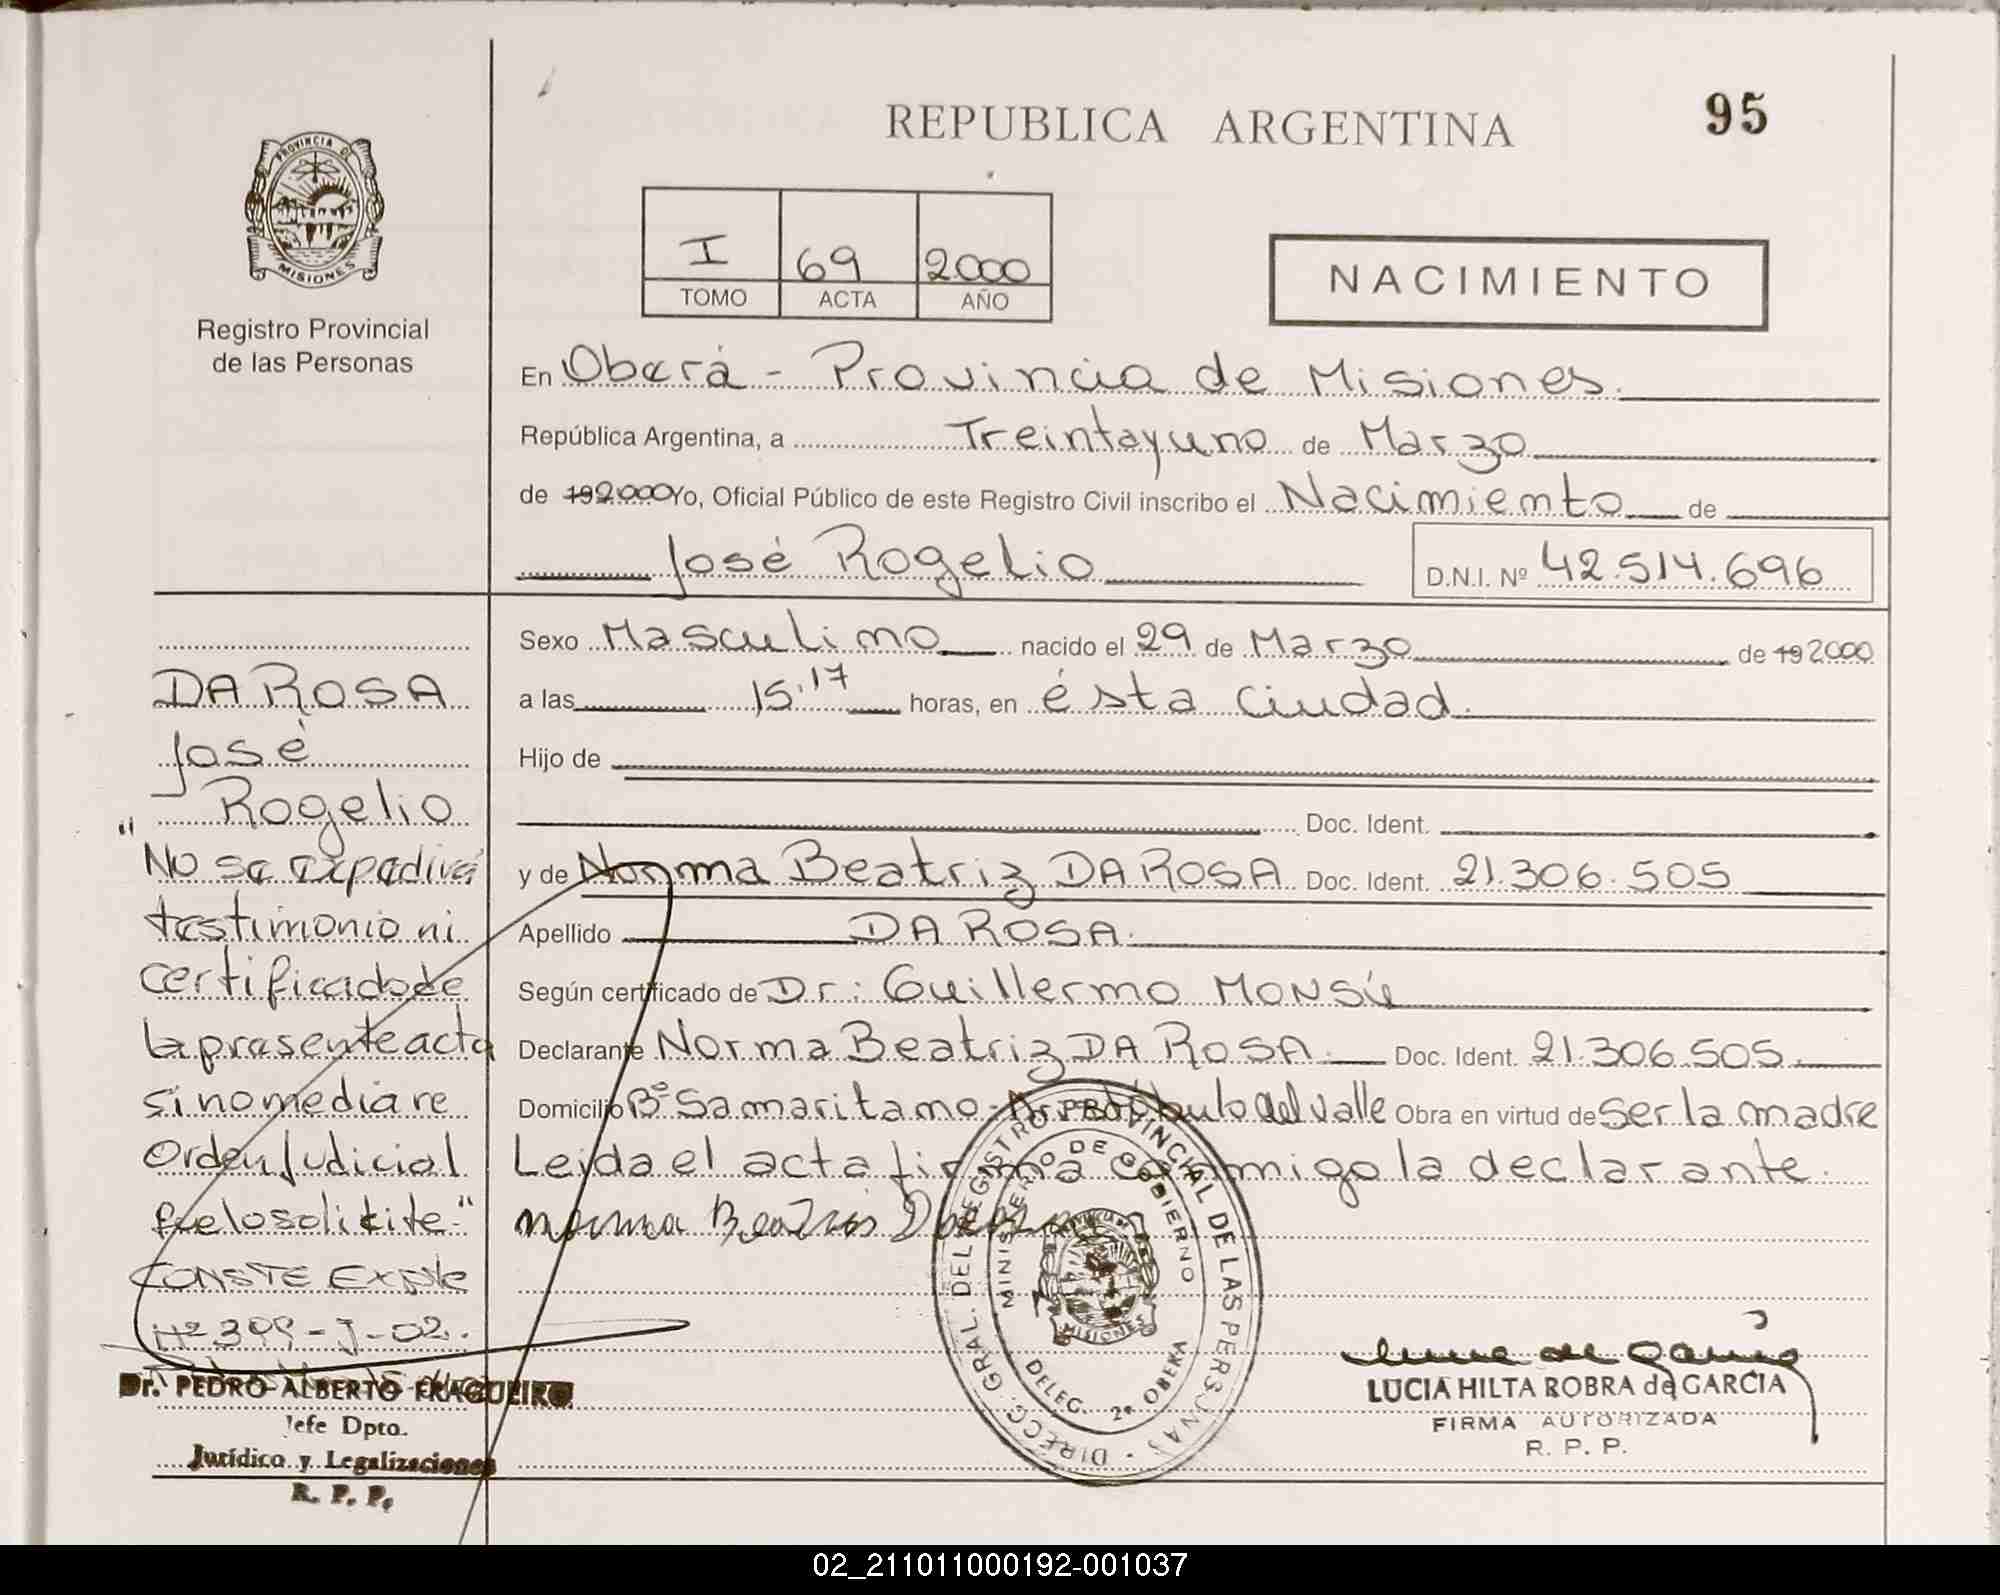 REPUBLICA ARGENTINA
95
PROVINCIA DE
MISIONES
Registro Provincial
de las Personas
I 69 2000
TOMO ACTA AÑO
NACIMIENTO
En Oberá - Provincia de Misiones.
República Argentina, a Treintayuno de Marzo
de 192000 Yo, Oficial Público de este Registro Civil inscribo el Nacimiento de
José Rogelio
D.N.I. Nº 42.514.696
Sexo Masculino nacido el 29 de Marzo de 19 2000
a las 15:17 horas, en ésta Ciudad.
Hijo de
Doc. Ident.
y de Norma Beatriz DA ROSA Doc. Ident. 21.306.505
Apellido DA ROSA.
Según certificado de Dr: Guillermo
Declarante Norma Beatriz DA ROSA. Doc. Ident. 21.306.505.
Domicilio Bº Samaritano - del Valle Obra en virtud de Ser la madre
Leida el acta firma conmigo la declarante.
Norma Beatris
DA ROSA
José
Rogelio
"No se expedirá
testimonio ni
certificado de
la presente acta
si no mediare
Orden Judicial
que lo solicite."
CONSTE EXPTE
Nº 399-J-02.
Dr. PEDRO ALBERTO FRAGUEIRO
Jefe Dpto.
Jurídico y Legalizaciones
R. P. P.
DIRECC. GRAL. DEL REGISTRO PROVINCIAL DE LAS PERSONAS
MINISTERIO DE GOBIERNO
MISIONES
DELEG. 2ª OBERA
LUCIA HILTA ROBRA de GARCIA
FIRMA AUTORIZADA
R. P. P.
02_211011000192-001037